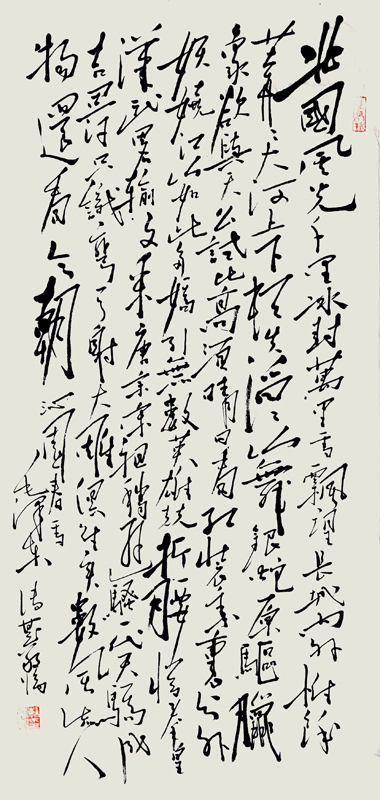 北國風光千里冰封萬里雪飄望長城內外惟餘
莽莽大河上下頓失滔滔山舞銀蛇原驅臘
象欲與天公試比高須晴日看紅裝素裹分外
妖嬈江山如此多嬌引無數英雄競折腰惜秦皇
漢武畧輸文采唐宗宋祖稍遜風騷一代天驕成
吉思汗只識彎弓射大雕俱往矣數風流人
物還看今朝 沁園春雪
毛澤東